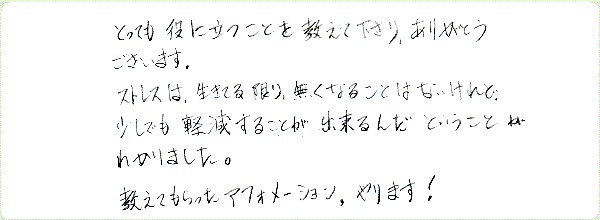 とっても役に立つことを教えて下さり、ありがとう
ございます。
ストレスは、生きてる限り、無くなることはないけれど、
少しでも軽減することが出来るんだということが
わかりました。
教えてもらったアファメーション、やります！